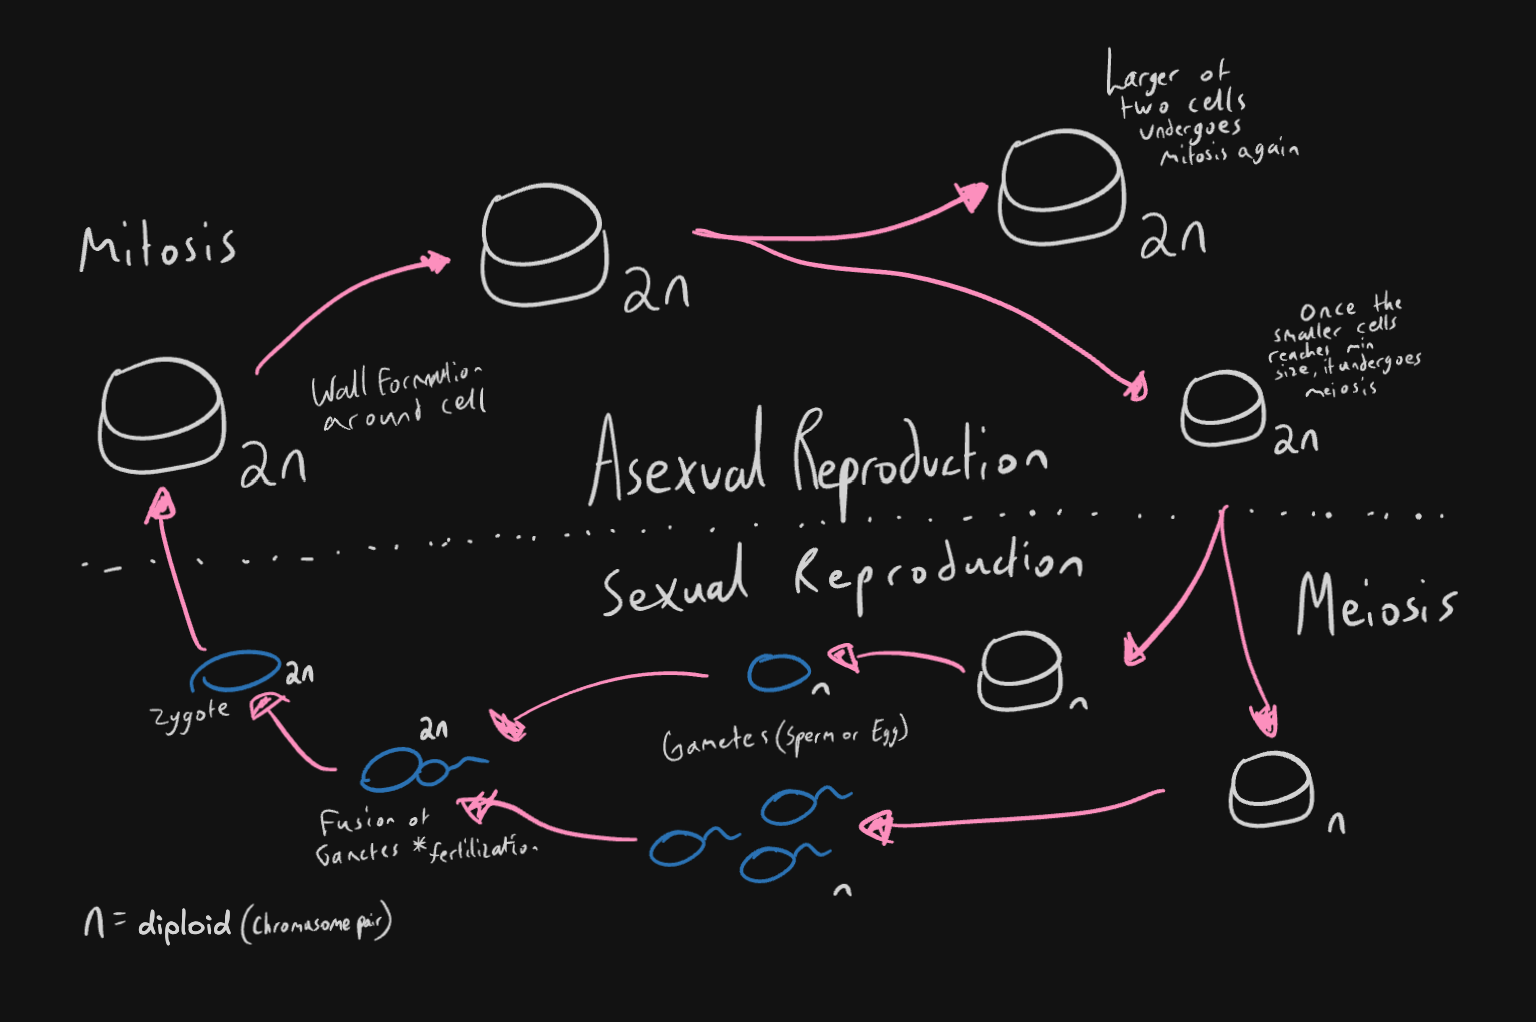 Larger of
two cells
undergoes
mitosis again
Mitosis
2n
2n
Once the
smaller cells
reaches min
size, it undergoes
meiosis
Wall Formation
around cell
2n
2n
Asexual Reproduction
Sexual Reproduction
Meiosis
2n
Zygote
n
n
2n
Gametes (Sperm or Egg)
Fusion of
Gametes *fertilization
n
n
n = diploid (Chromasome pair)